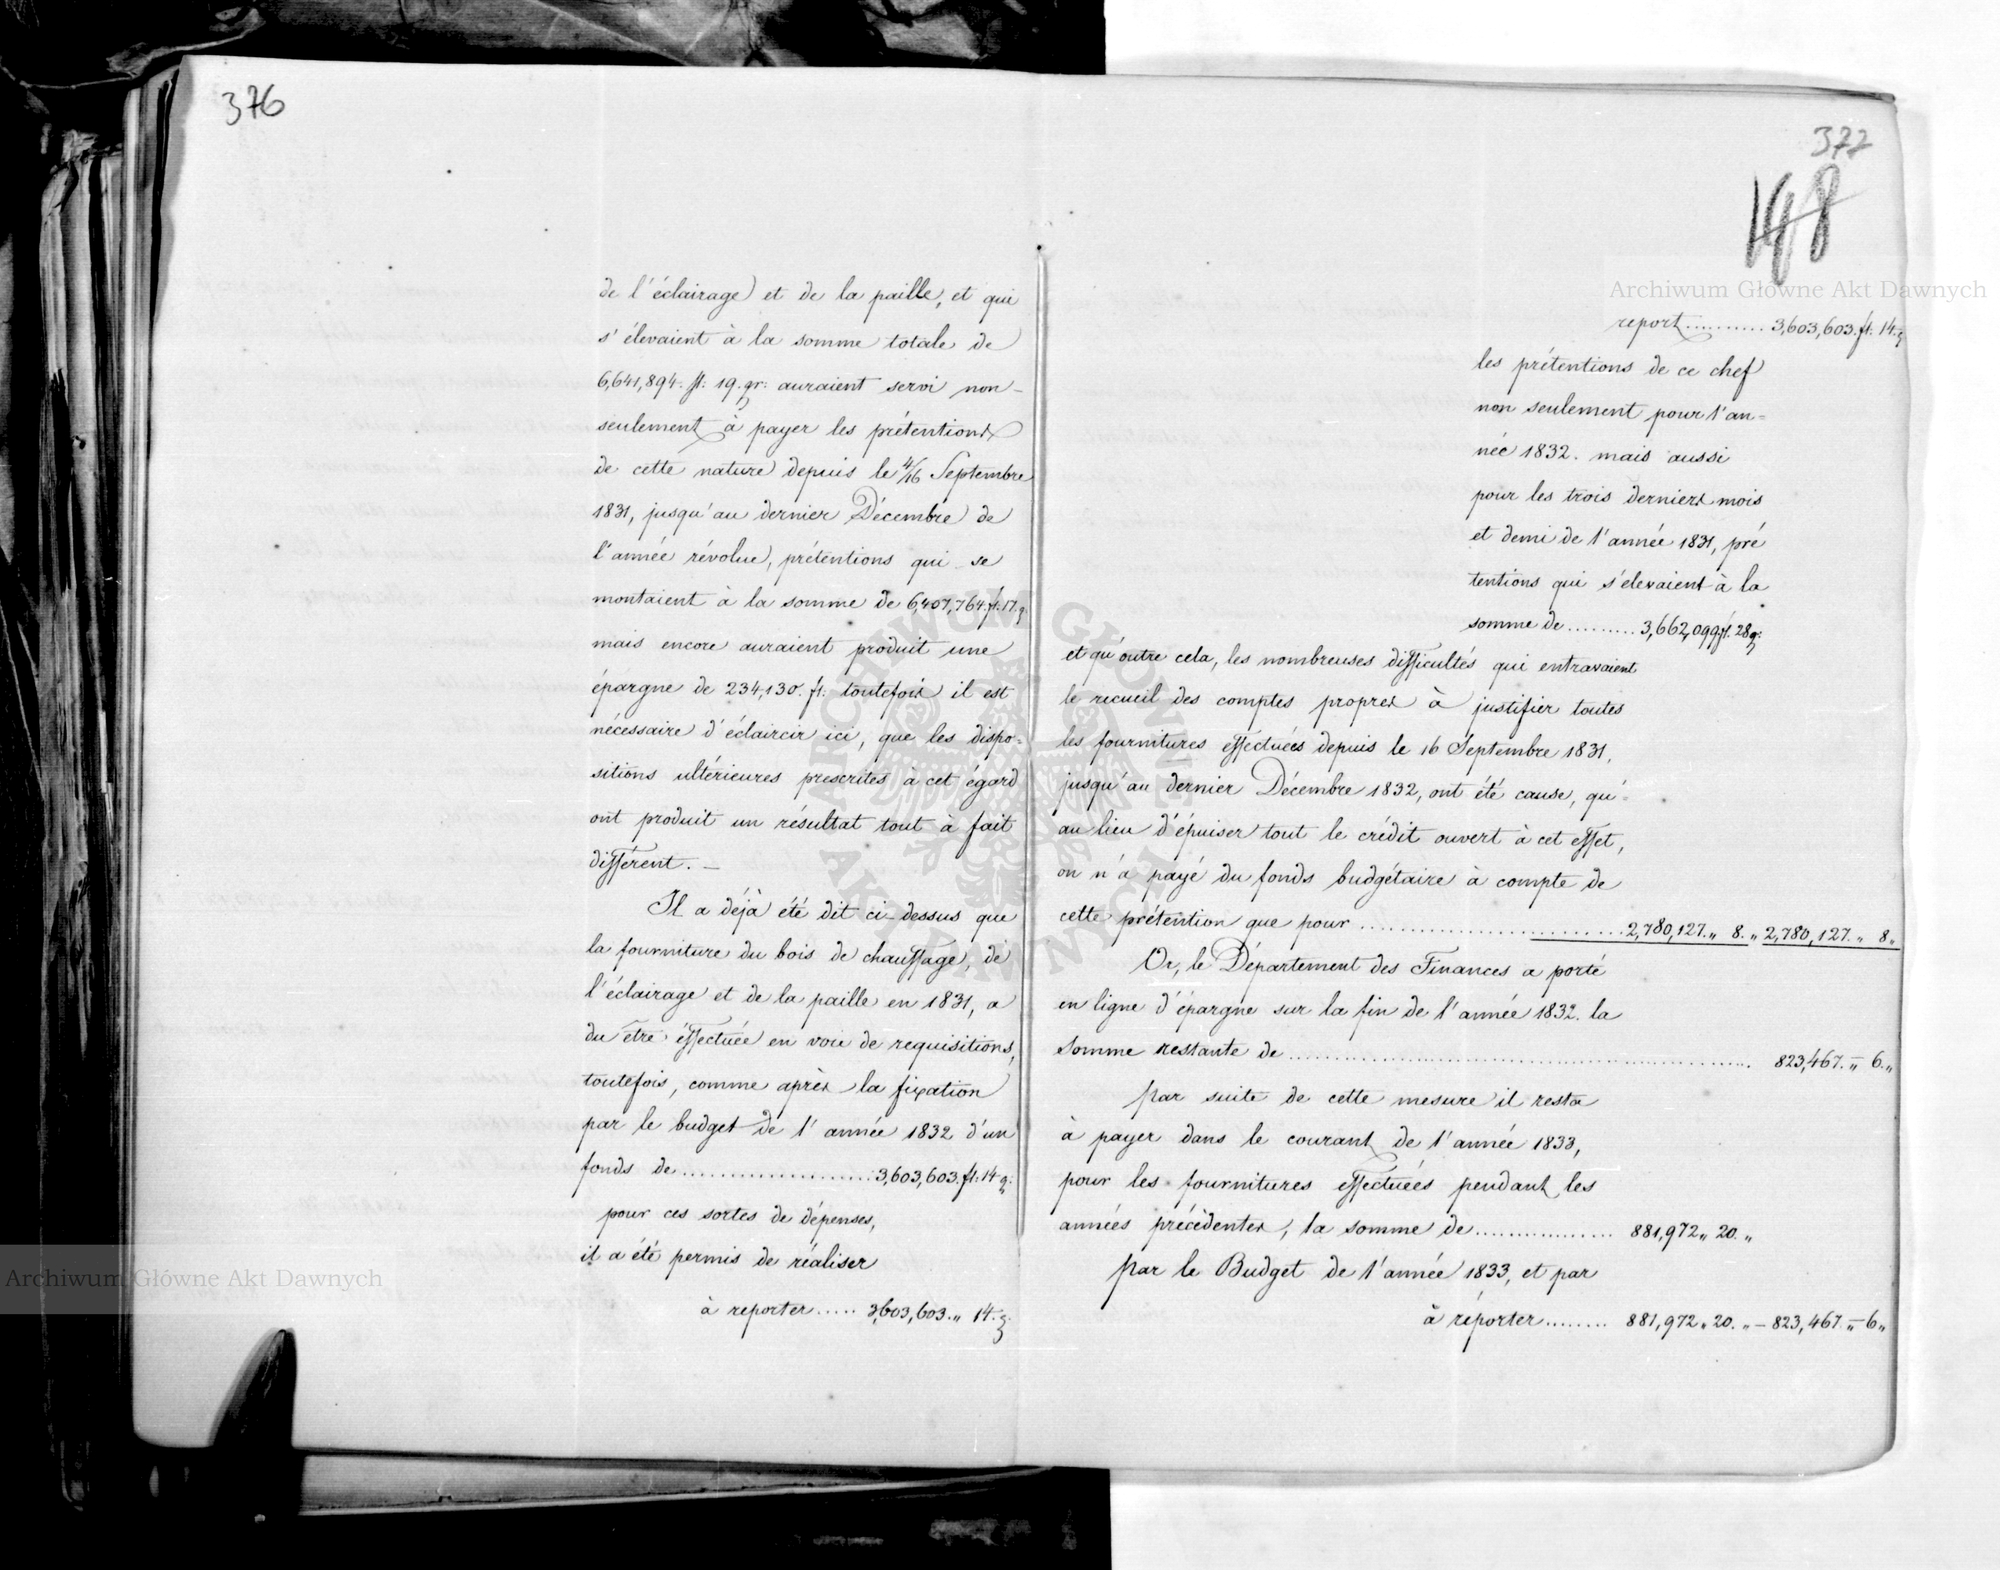 376
de l'éclairage et de la paille, et qui
s'élevaient à la somme totale de
6,641,894. fl: 19. gr: auraient servi non-
seulement à payer les prétentions
de cette nature depuis le 4/16 Septembre
1831, jusqu'au dernier Décembre de
l'année révolue, prétentions qui se
montaient à la somme de 6,407,764. fl: 17. g.
mais encore auraient produit une
épargne de 234,130. fl: toutefois il est
nécessaire d'éclaircir ici, que les dispo=
sitions ultérieures prescrites à cet égard
ont produit un résultat tout à fait
différent. —
Il a déjà été dit ci-dessus que
la fourniture du bois de chauffage, de
l'éclairage et de la paille en 1831, a
du être éffectuée en voie de requisitions,
toutefois, comme après la fixation
par le budget de l'année 1832 d'un
fonds de .................... 3,603,603. fl: 14 g:
pour ces sortes de dépenses,
il a été permis de réaliser
à reporter ..... 3,603,603. „ 14. g
377
198
report .......... 3,603,603. fl: 14. g
les prétentions de ce chef
non seulement pour l'an=
née 1832. mais aussi
pour les trois derniers mois
et demi de l'année 1831, pré
tentions qui s'élevaient à la
somme de ......... 3,662,099. fl. 28 g:
et qu'outre cela, les nombreuses difficultés qui entravaient
le recueil des comptes propres à justifier toutes
les fournitures effectuées depuis le 16 Septembre 1831,
jusqu'au dernier Décembre 1832, ont été cause, qu'=
au lieu d'épuiser tout le crédit ouvert à cet effet,
on n'a payé du fonds budgétaire à compte de
cette prétention que pour .......................... 2,780,127. „ 8. „ 2,780,127. „ 8 „
Or, le Département des Finances a porté
en ligne d'épargne sur la fin de l'année 1832. la
somme restante de .................................................. 823,467. „ — 6. „
par suite de cette mesure il resta
à payer dans le courant de l'année 1833,
pour les fournitures effectuées pendant les
années précédentes, la somme de ................ 881,972 „ 20. „
par le Budget de l'année 1833, et par
à réporter ........ 881,972 „ 20. „ — 823,467. „ — 6 „
Archiwum Główne Akt Dawnych
Archiwum Główne Akt Dawnych
ARCHIWUM GŁÓWNE AKT DAWNYCH